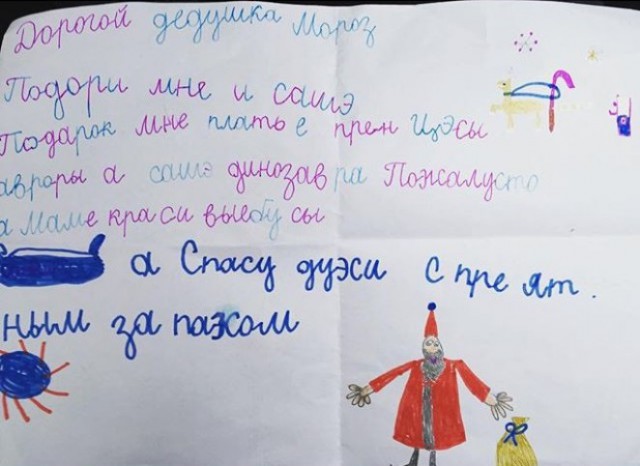 Дорогой дедушка Мороз
Подори мне и сашэ
Подарок мне платье прен Цэсы
авроры а сашэ динозавра Пожалусто
а Маме краси вые бусы
а Спасу дуэси с прeят.
ным за пахом